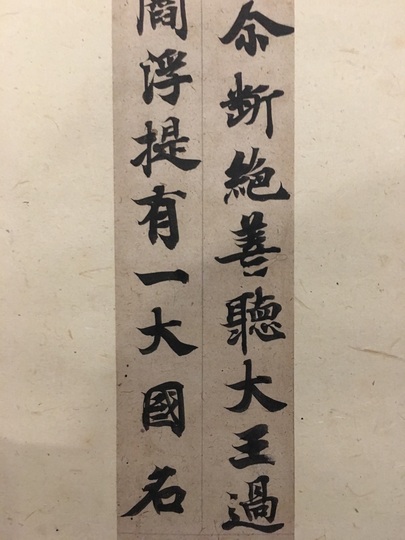 尒断絶善聽大王過
閻浮提有一大國名